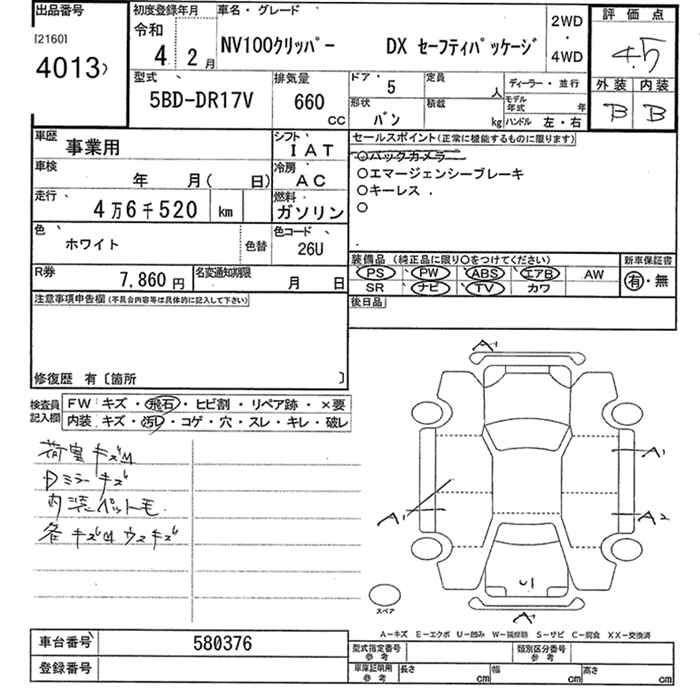 出品番号
[2160]
4013
初度登録年月
令和
4 2月
車名・グレード
NV100クリッパー DX セーフティパッケージ
2WD
・
4WD
評価点
4.5
外装 内装
B B
型式
5BD-DR17V
排気量
660
cc
ドア・ 5
定員 人
形状 バン
積載 kg
ディーラー・並行
モデル年式 年
ハンドル 左・右
車歴 事業用
シフト IAT
車検 年 月( 日)
冷房 AC
走行 4万6千520 km
燃料 ガソリン
色 ホワイト
色替
色コード 26U
R券 7,860円
名変通知期限 月 日
セールスポイント(正常に機能するものに限ります)
○バックカメラ
○エマージェンシーブレーキ
○キーレス
○
装備品(純正品に限り○をつけてください)
PS PW ABS エアB AW
SR ナビ TV カワ
新車保証書
有・無
後日品
注意事項申告欄(不具合内容等は具体的に記入して下さい)
修復歴 有〔箇所 〕
検査員記入欄
FW キズ・飛石・ヒビ割・リペア跡・×要
内装 キズ・汚レ・コゲ・穴・スレ・キレ・破レ
荷室キズM
Dミラーキズ
内装ペット毛
各キズMウスキズ
A1
A1
A1
A2
U1
A1
スペア
A-キズ E-エクボ U-凹み W-補修跡 S-サビ C-腐食 XX-交換済
車台番号 580376
登録番号
型式指定番号
参考
類別区分番号
参考
車庫証明用
参考
長さ cm
幅 cm
高さ cm